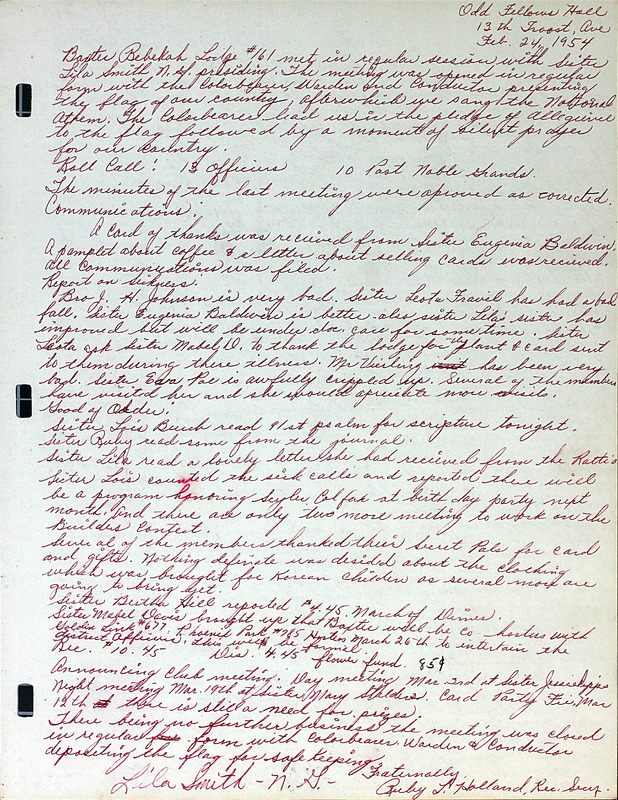 Odd Fellows Hall
13th Troost, Ave
Feb. 24, 1954
Baxter Rebekah Lodge #61 met in regular session with Sister
Lila Smith N. G. presiding. The meeting was opened in regular
form with the Colorbearer, Warden and Conductor presenting
the flag of our country, afterwhich we sang the National
Athem. The Colorbearer lead us in the pledge of Allegiance
to the flag followed by a moment of silent prayer
for our country.
Roll Call: 13 Officers 10 Past Noble Grands.
The minutes of the last meeting were aproved as corrected.
Communications:
A card of thanks was recieved from Sister Eugenia Baldwin.
A pamplet about coffee & a letter about selling cards was recieved.
All Communications was filed.
Report on Sickness.
Bro J. H. Johnson is very bad. Sister Lesta Travil has had a bad
fall. Sister Eugenia Baldwin is better. also sister Lila's sister has
improved but will be under doc. care for some time. Sister
Lesta ask Sister Mabel D. to thank the lodge for the plant & card sent
to them during there illness. Mr Vierling has been very
bad. Sister Eva Poe is awfully crippled up. Several of the members
have visited her and she would apreciate more visits.
Good of Order:
Sister Lois Burch read 91st psalm for scripture tonight.
Sister Ruby read some from the journal.
Sister Lila read a lovely letter she had received from the
Sister Lois counted the sick calls and reported there will
be a program honoring Scyler Colfax at birth day party next
month. and there are only two more meeting to work on the
Builders Contest.
Several of the members thanked their Secret Pals for card
and gifts. Nothing definate was desided about the clothing
which was brought for Korean children as several more are
going to bring yet.
Sister Bertha Hill reported $4.45 March of Dimes.
Sister Mabel Davis brought up that Baxter will be co-hostess with
Golden Link #677, Phoenix Park #785 Hosters March 26th to intertain the
District Officers. This will be formal
Rec. $10.45 Dis. 4.45 flower fund. 85¢
Announcing Club meeting. Day meeting Mar 2nd at Sister Jessie
Night meeting Mar. 19th at Sister Mary Card Party Fri, Mar
12th there is still a need for prizes.
There being no further business the meeting was closed
in regular form with Colorbearer Warden & Conductor
depositing the flag for safe keeping.
Fraternally
Lila Smith - N. G. - Ruby L. Holland, Rec. Secy.